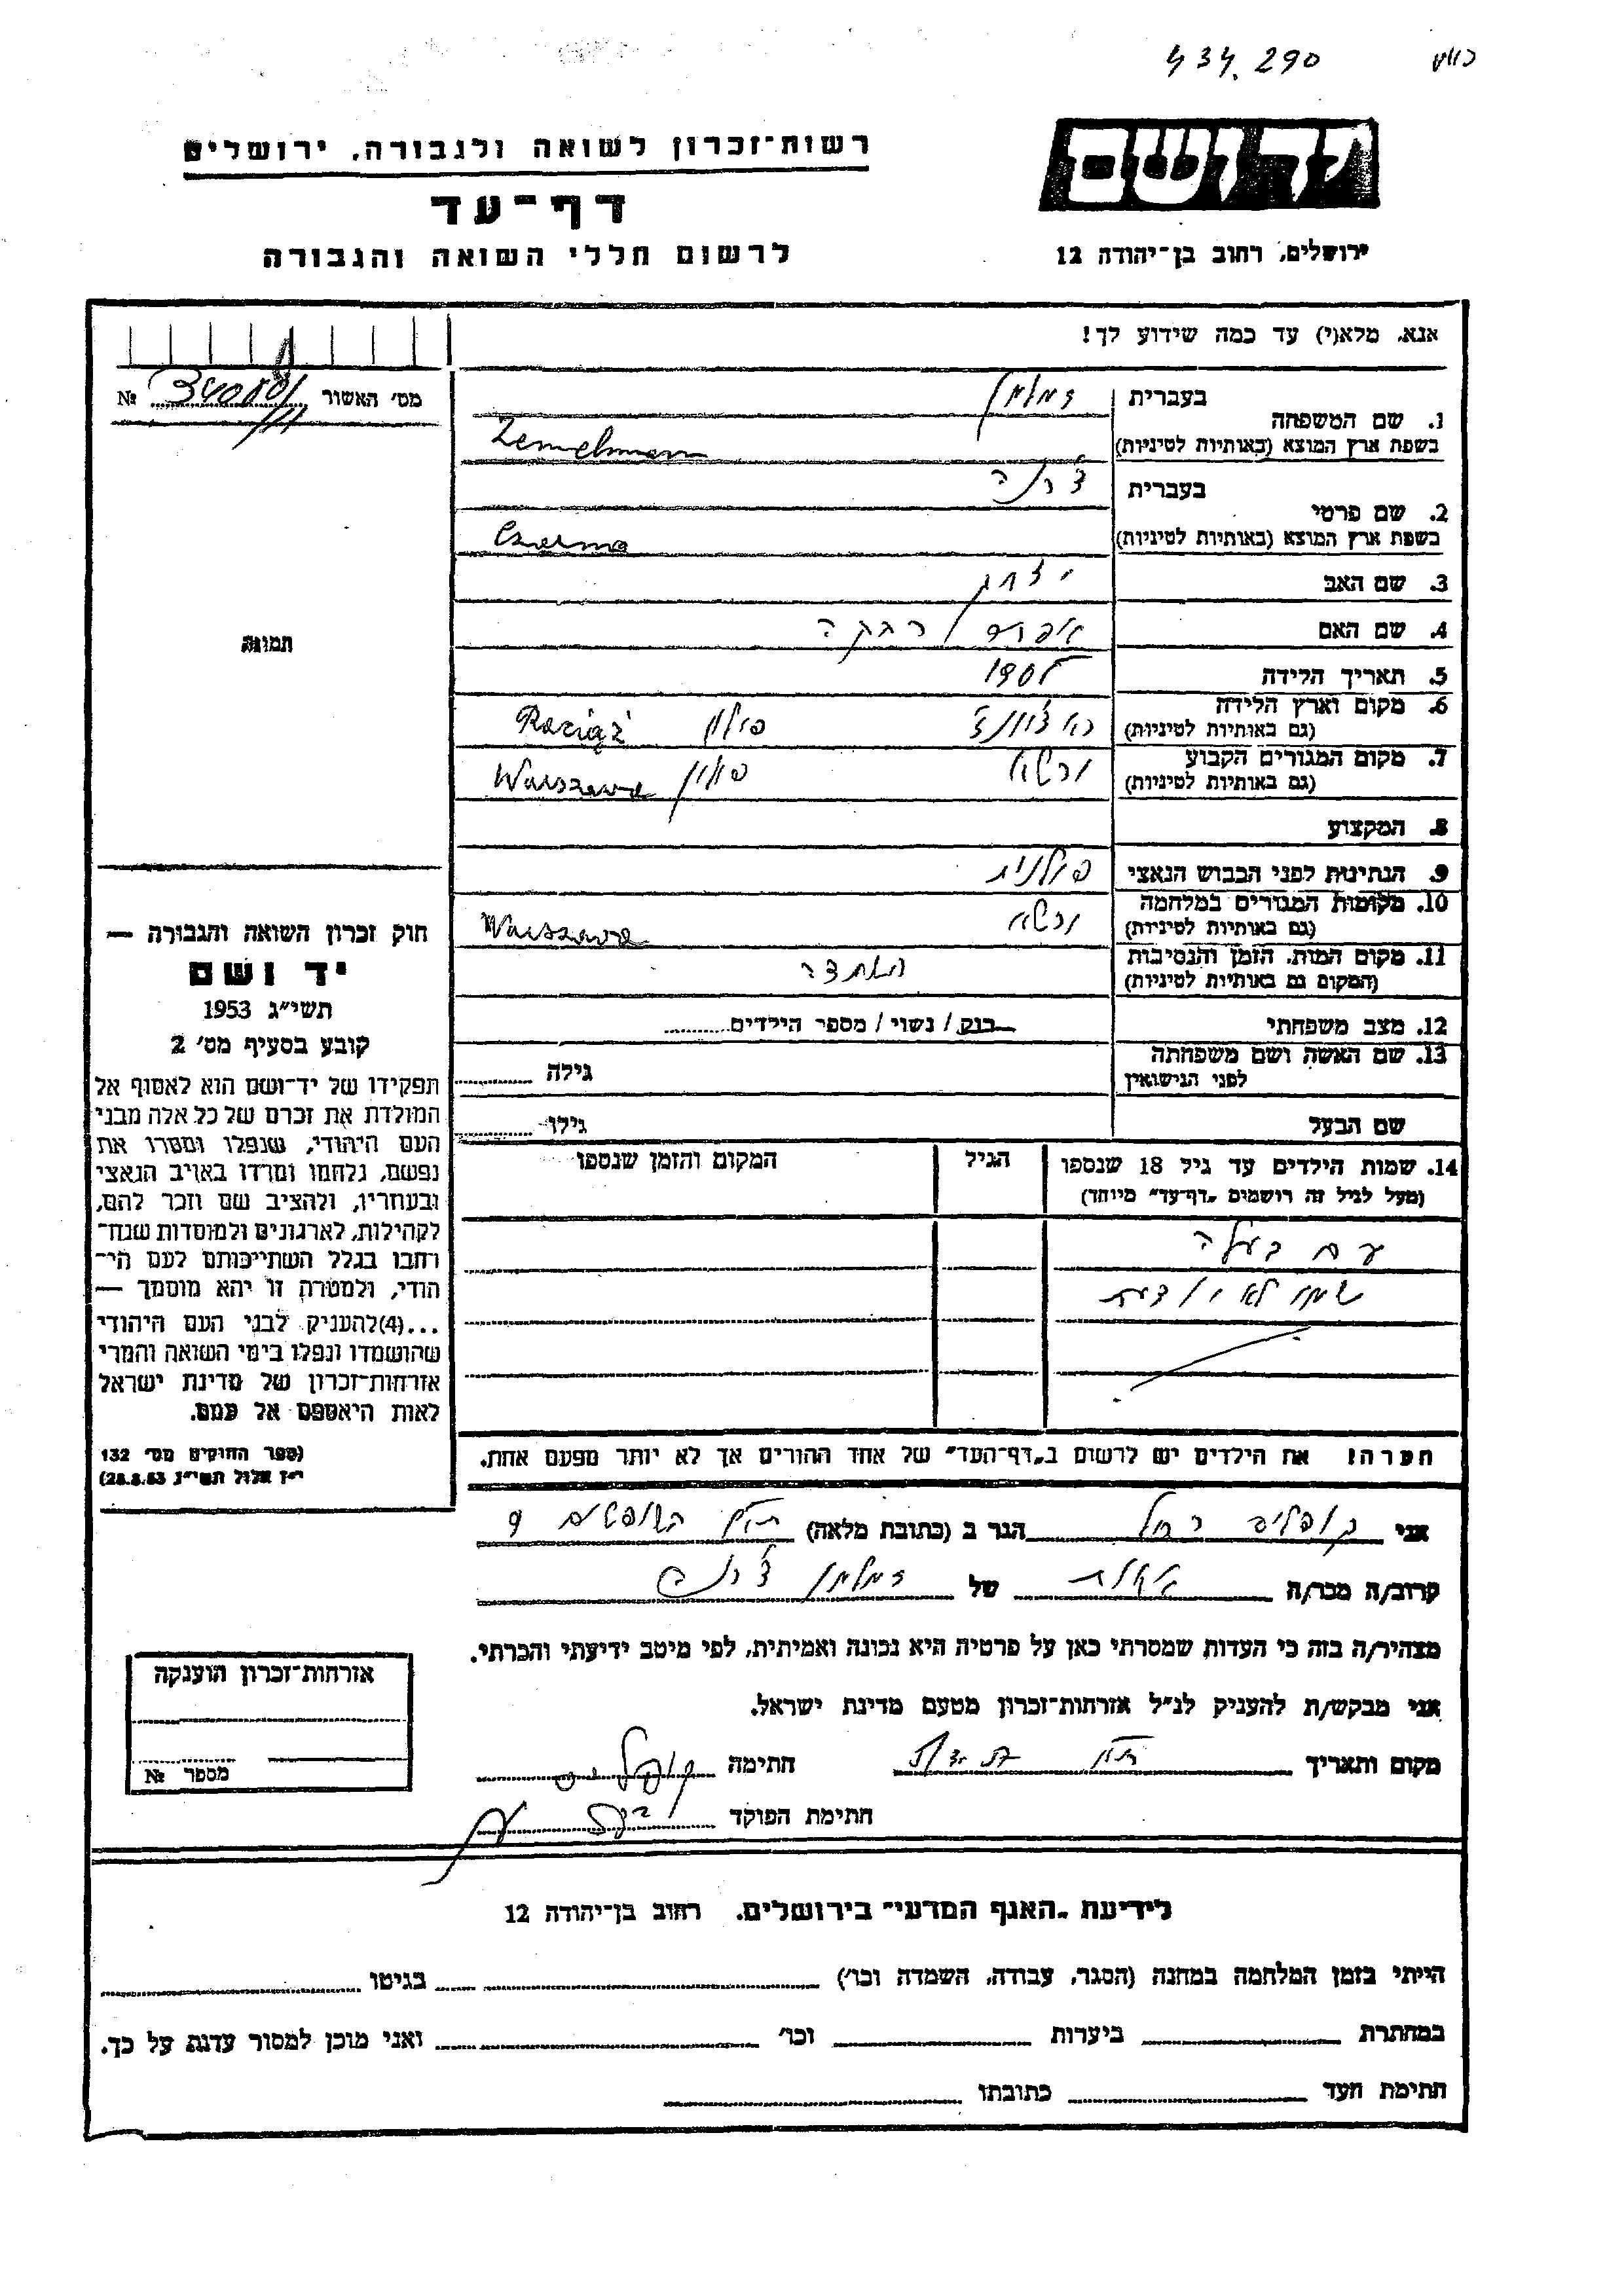 434.290
יד ושם
רשות־זכרון לשואה ולגבורה, ירושלים
דף־עד
לרשום חללי השואה והגבורה
ירושלים, רחוב בן־יהודה 12
אנא, מלא(י) עד כמה שידוע לך!
מס׳ האשור № 
1. שם המשפחה
בעברית זמלמן
בשפת ארץ המוצא (באותיות לטיניות) Zemelmann
2. שם פרטי
בעברית צ׳רנה
בשפת ארץ המוצא (באותיות לטיניות) Czerna
3. שם האב יצחק
4. שם האם רבקה
5. תאריך הלידה
6. מקום וארץ הלידה
(גם באותיות לטיניות) פולין Raciąż
7. מקום המגורים הקבוע
(גם באותיות לטיניות) ורשא פולין Warszawa
8. המקצוע
9. הנתינות לפני הכבוש הנאצי פולנית
10. מקומות המגורים במלחמה
(גם באותיות לטיניות) ורשא Warszawa
11. מקום המות, הזמן והנסיבות
(המקום גם באותיות לטיניות)
12. מצב משפחתי רוק / נשוי / מספר הילדים
13. שם האשה ושם משפחתה
לפני הנישואין גילה
שם הבעל גילו
14. שמות הילדים עד גיל 18 שנספו הגיל המקום והזמן שנספו
(מעל לגיל זה רושמים „דף־עד״ מיוחד)
עם בעלה
שמו לא יודעת
תמונה
חוק זכרון השואה והגבורה —
יד ושם
תשי״ג 1953
קובע בסעיף מס׳ 2
תפקידו של יד־ושם הוא לאסוף אל
המולדת את זכרם של כל אלה מבני
העם היהודי, שנפלו ומסרו את
נפשם, נלחמו ומרדו באויב הנאצי
ובעוזריו, ולהציב שם וזכר להם,
לקהילות, לארגונים ולמוסדות שנח־
רבו בגלל השתייכותם לעם הי־
הודי, ולמטרה זו יהא מוסמך —
...(4)להעניק לבני העם היהודי
שהושמדו ונפלו בימי השואה והמרי
אזרחות־זכרון של מדינת ישראל
לאות היאספם אל עמם.
(ספר החוקים מס׳ 132
י״ז אלול תשי״ג 28.8.53)
הערה! את הילדים יש לרשום ב„דף־העד״ של אחד ההורים אך לא יותר מפעם אחת.
אני רחל הגר ב (כתובת מלאה) השופטים 9
קרוב/ה מכר/ה אחות של זמלמן צ׳רנה
מצהיר/ה בזה כי העדות שמסרתי כאן על פרטיה היא נכונה ואמיתית, לפי מיטב ידיעתי והכרתי.
אני מבקש/ת להעניק לנ״ל אזרחות־זכרון מטעם מדינת ישראל.
מקום ותאריך חתימה
חתימת הפוקד
אזרחות־זכרון הוענקה
מספר №
לידיעת „האגף המדעי״ בירושלים. רחוב בן־יהודה 12
הייתי בזמן המלחמה במחנה (הסגר, עבודה, השמדה וכו׳) בגיטו
במחתרת ביערות וכו׳ ואני מוכן למסור עדות על כך.
חתימת העד כתובתו